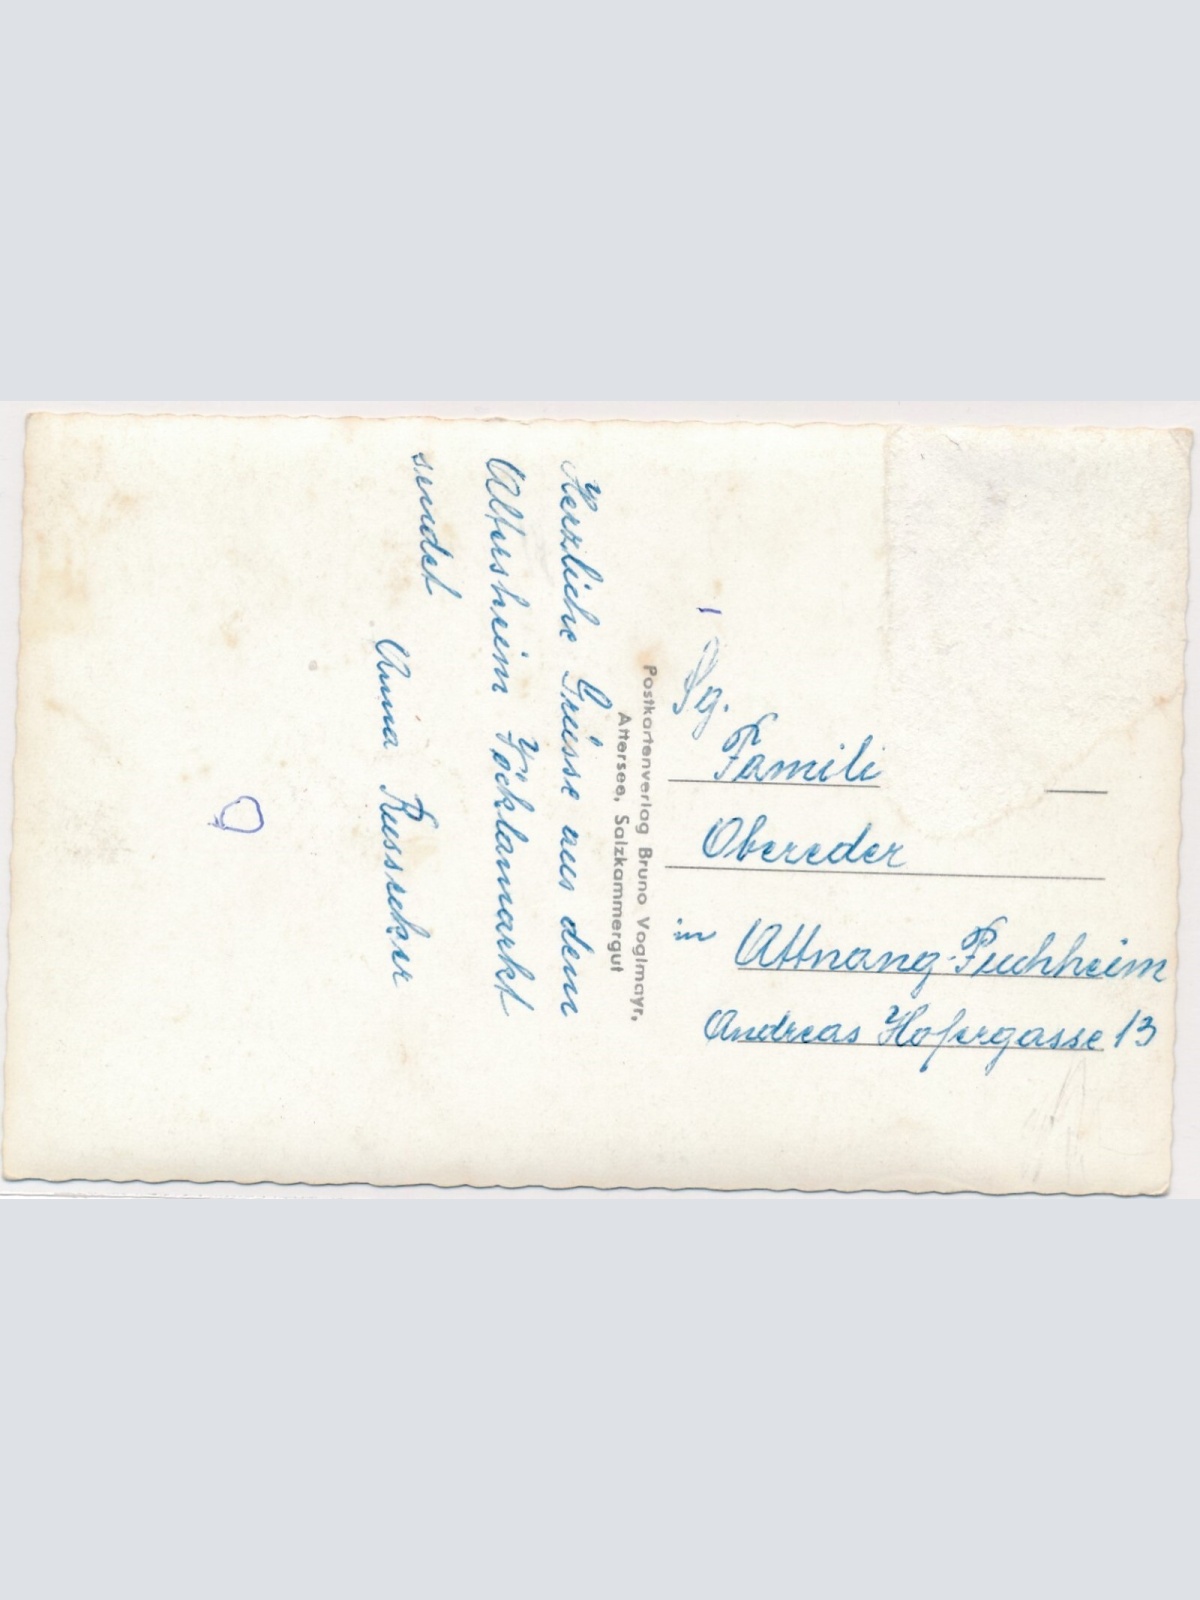 Herzliche Grüsse aus dem
Altersheim Vöcklamarkt
sendet
Anna Russeker
Postkartenverlag Bruno Voglmayr,
Attersee, Salzkammergut
Sg.
Famili
Obereder
in Attnang-Puchheim
Andreas Hofergasse 13